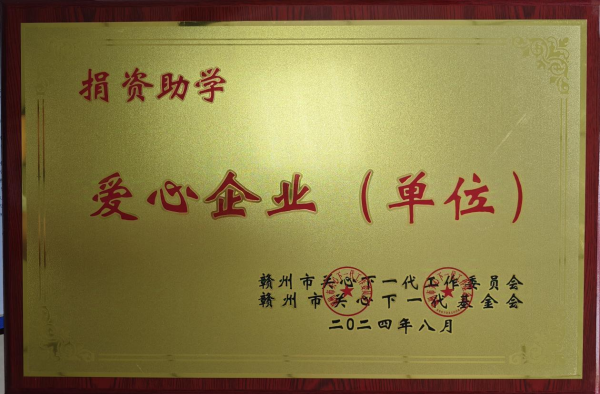 捐资助学
爱心企业（单位）
赣州市关心下一代工作委员会
赣州市关心下一代基金会
二〇二四年八月